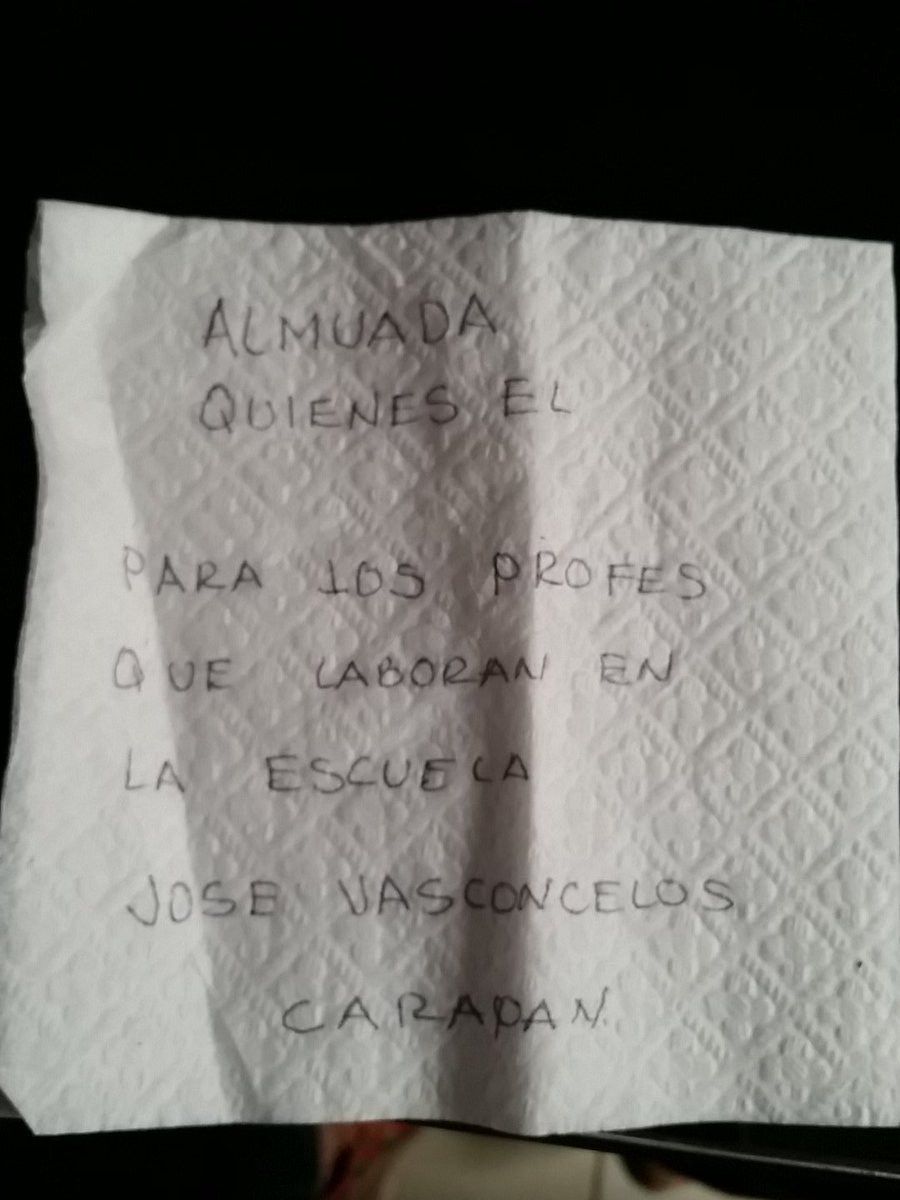 ALMUADA
QUIENES EL
PARA LOS PROFES
QUE LABORAN EN
LA ESCUELA
JOSE VASCONCELOS
CARAPAN